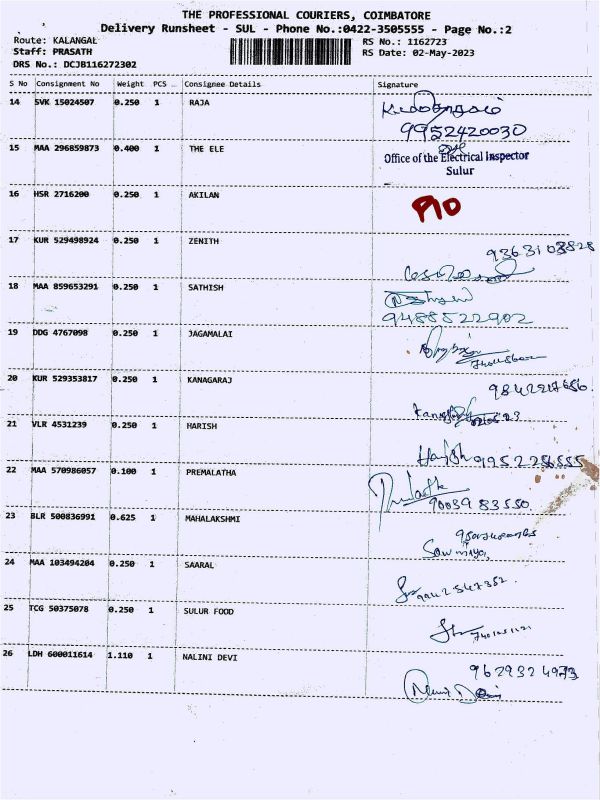 THE PROFESSIONAL COURIERS, COIMBATORE
Delivery Runsheet - SUL - Phone No.:0422-3505555 - Page No.:2
Route: KALANGAL RS No.: 1162723
Staff: PRASATH RS Date: 02-May-2023
DRS No.: DCJB116272302
S No Consignment No Weight PCS .. Consignee Details Signature
14 SVK 15024507 0.250 1 RAJA
9952420030
15 MAA 296859873 0.400 1 THE ELE
Office of the Electrical Inspector
Sulur
16 HSR 2716200 0.250 1 AKILAN
17 KUR 529498924 0.250 1 ZENITH
9363103828
18 MAA 859653291 0.250 1 SATHISH
9488522902
19 DDG 4767098 0.250 1 JAGAMALAI
20 KUR 529353817 0.250 1 KANAGARAJ
21 VLR 4531239 0.250 1 HARISH
Harish 9952256555
22 MAA 570986057 0.100 1 PREMALATHA
9003983550
23 BLR 500836991 0.625 1 MAHALAKSHMI
Sowmiya
24 MAA 103494204 0.250 1 SAARAL
25 TCG 50375078 0.250 1 SULUR FOOD
26 LDH 600011614 1.110 1 NALINI DEVI
9629324973